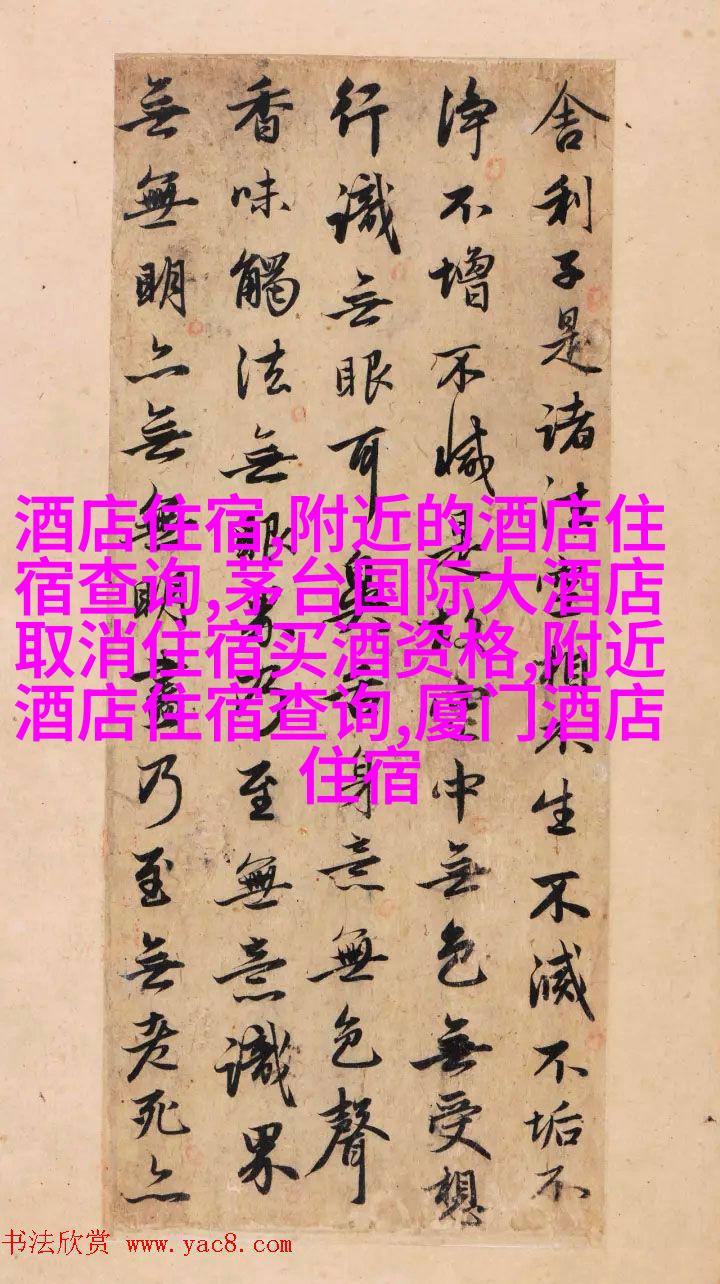 舍利子是諸法空相不生不滅不垢不
淨不增不減是故空中無色無受想
行識無眼耳鼻舌身意無色聲
香味觸法無眼界乃至無意識界
無無明亦無無明盡乃至無老死亦
酒店住宿,附近的酒店住
宿查询,茅台国际大酒店
取消住宿买酒资格,附近
酒店住宿查询,厦门酒店
住宿
书法欣赏 www.yac8.com